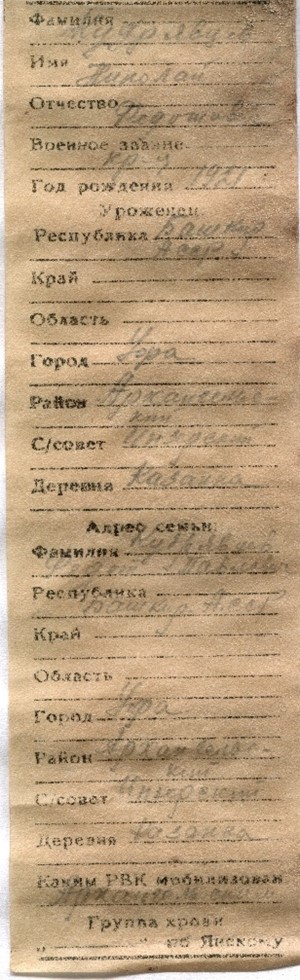 Фамилия Кудрявцев
Имя Николай
Отчество Федотович
Военное звание
кр-ц
Год рождения 1921
Уроженец:
Республика Башкир
Асср
Край
Область
Город Уфа
Район Архангельс-
кий
С/совет Инзерский
Деревня Казанка
Адрес семьи:
Фамилия Кудрявцев
Федот Павлович
Республика
Башкир АССР
Край
Область
Город Уфа
Район Архангельс-
кий
С/совет Инзерский
Деревня Казанка
Каким РВК мобилизован
Архангельским
Группа крови
„ " по Янскому